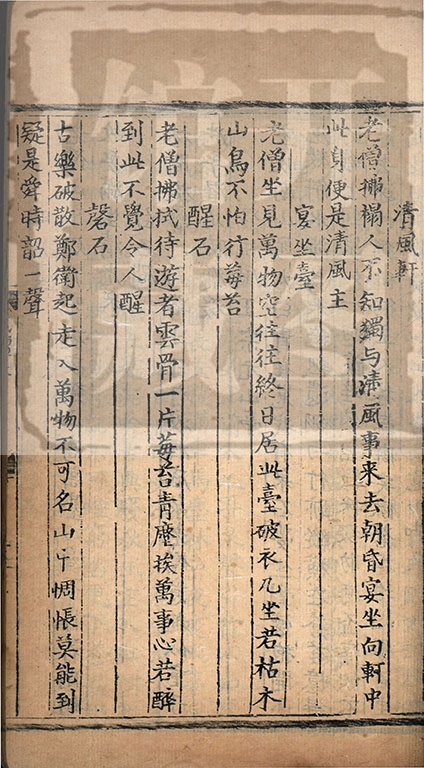 清風軒
老僧挪禢人不知獨与清風事来去朝昏宴坐向軒中
此身便是清風主
宴坐臺
老僧坐見萬物空往往終日居此臺破衣凡坐若枯木
山鳥不怕行莓苔
醒石
老僧挪拭待遊者雲骨一片莓苔青塵挨萬事心若醉
到此不覺令人醒
磬石
古樂破散鄭衛起走入萬物不可名山中惆悵莫能到
疑是舜時韶一聲